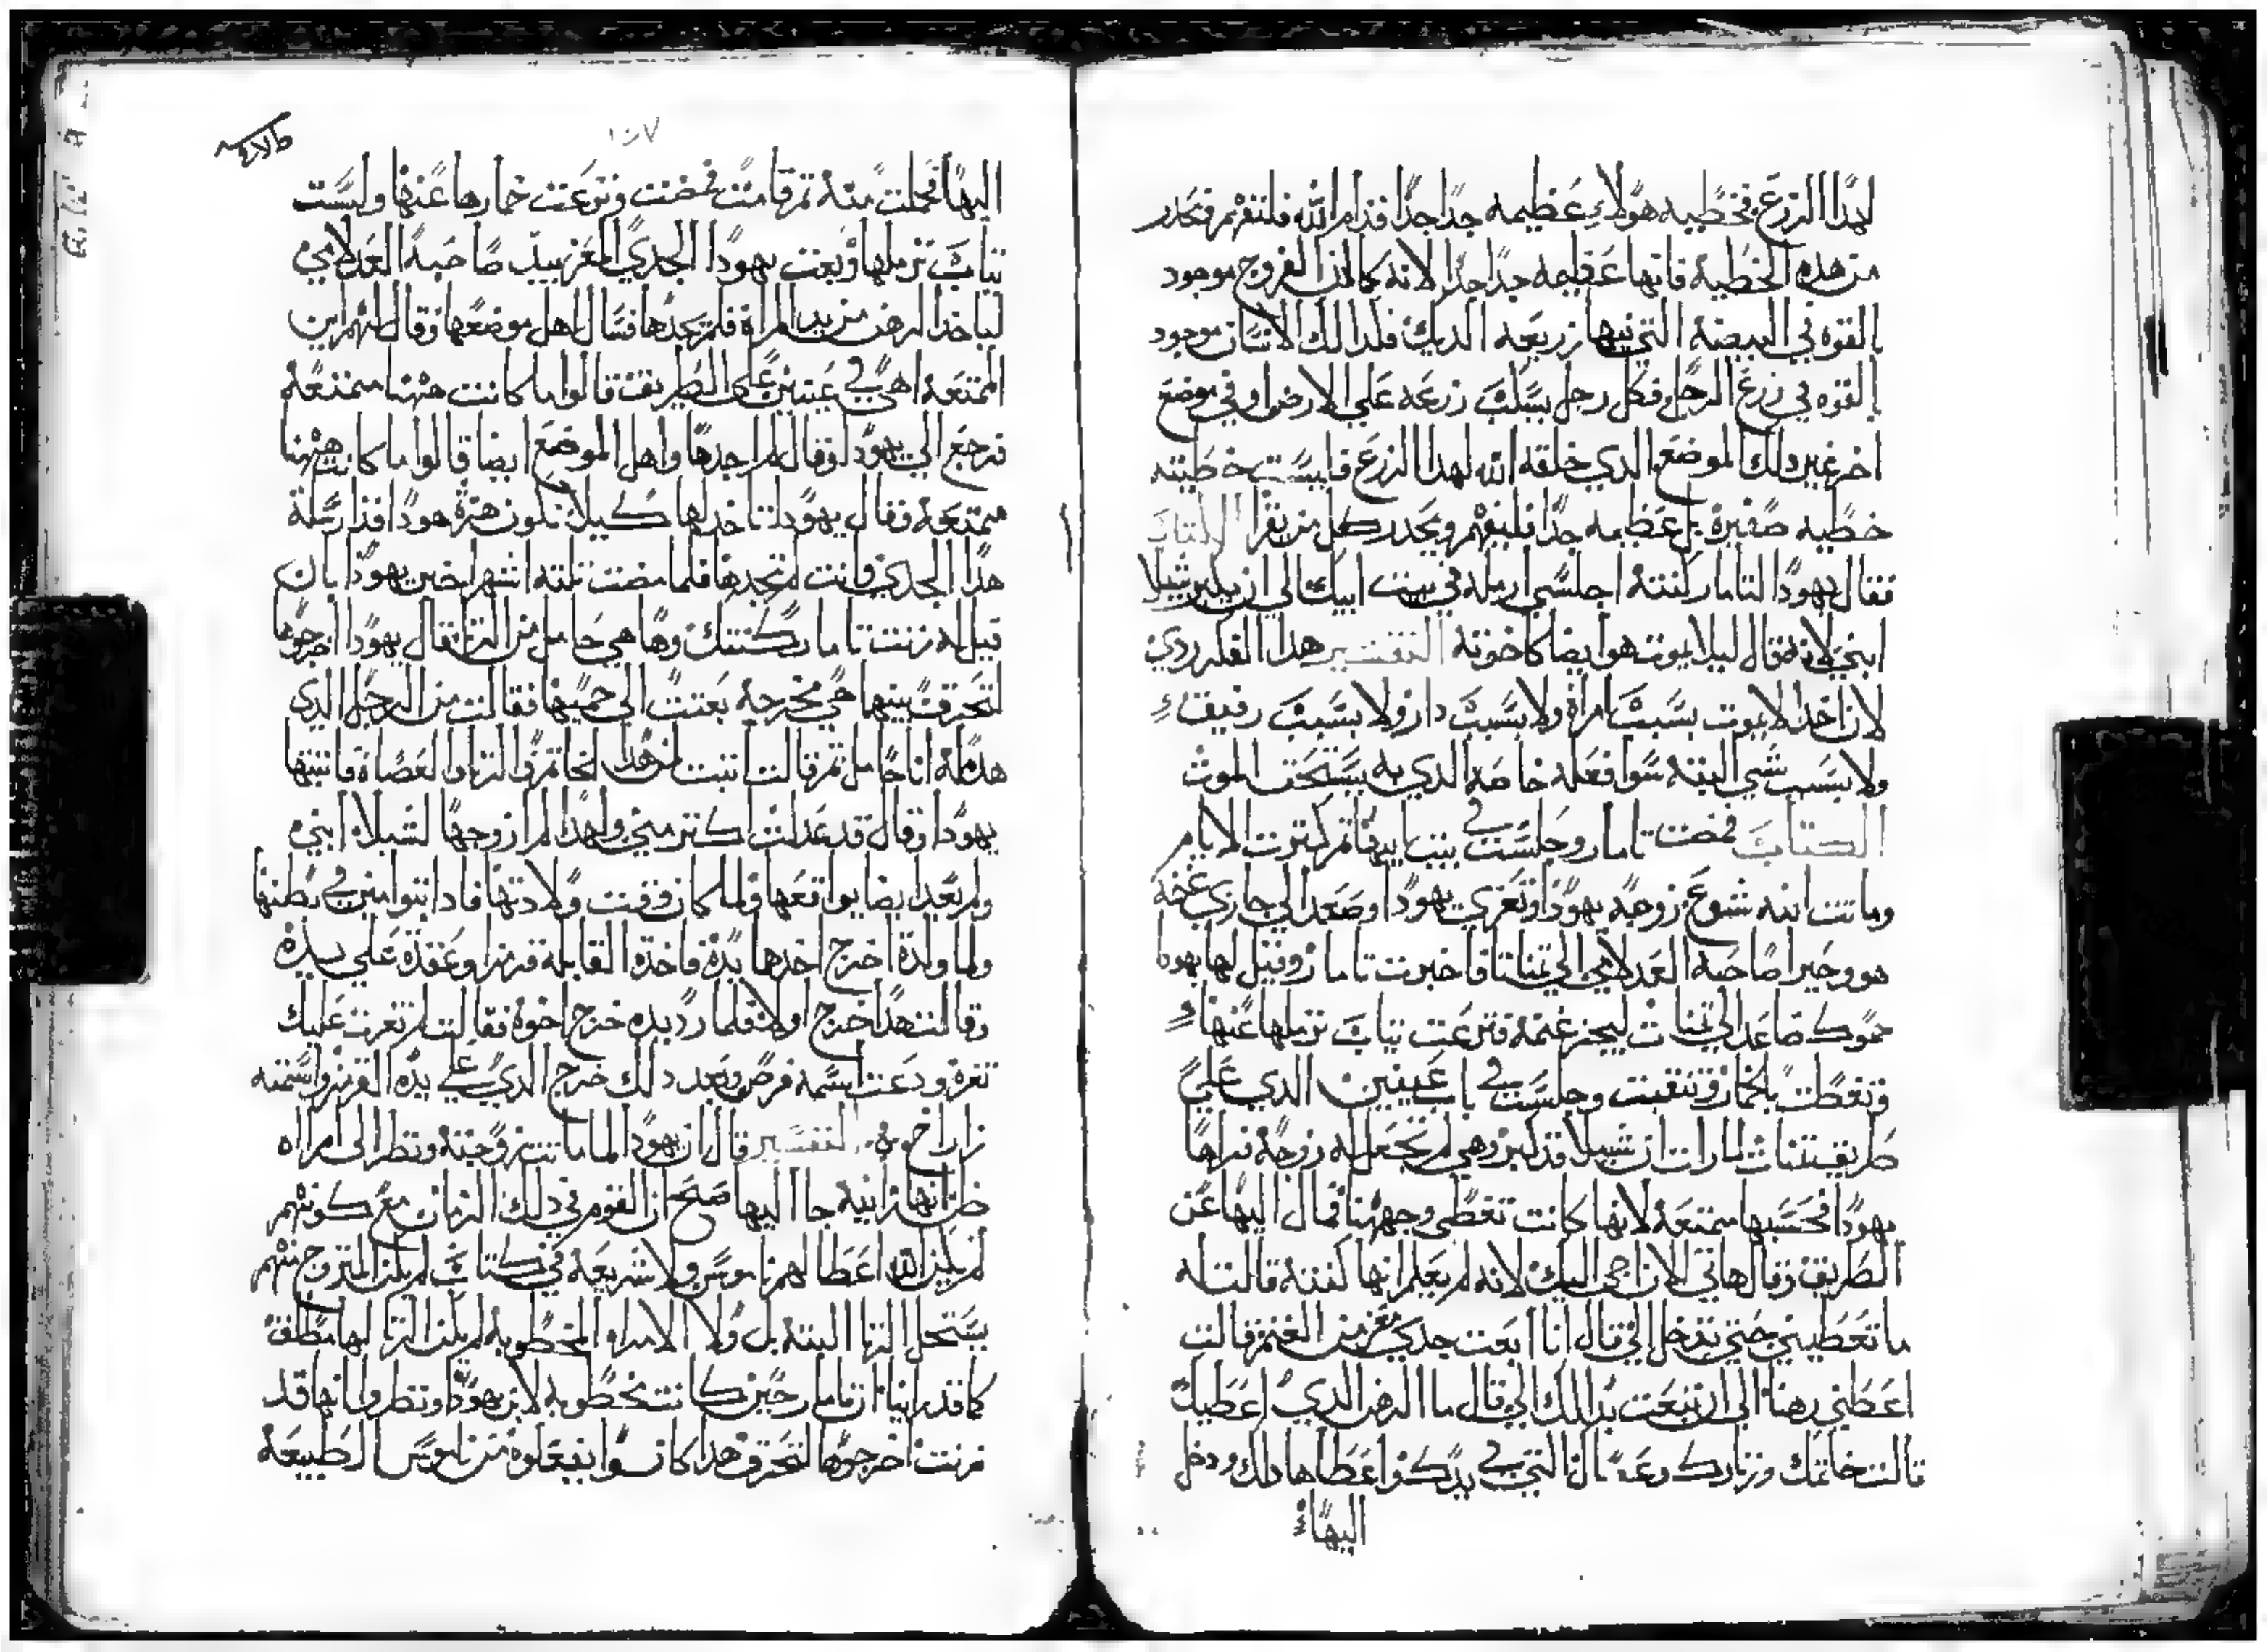 لهدا الزرع فخطيه هولاء عظيمه جدا جدا قدام الله فلنفهم فنحدر
من هده الخطيه فانها عظيمه جدا جدا لانه كما ان الفروج موجود
بالقوه في البيضه التي فيها زريعه الديك فلدالك الانسان موجود
بالقوه في زرع الرجل فكل رجل يسكب زرعه علي الارض او في موضع
اخر غير دلك الموضع الدي خلقه الله لهدا الزرع فليست خطيته
خطيه صغيره بل عظيمه جدا فليفهم ويحدر كل من يقرا الكتاب
فقال يهودا لتامار كنته اجلسي ارمله في بيت ابيك الي ان يكبر شيلا
ابني لانه قال ليلا يموت هو ايضا كاخوته التفسير هدا الفكر ردي
لان احدا لا يموت بسبب امراة ولا بسبب دار ولا بسبب رفيق
ولا بسبب شي البته سوا فعله خاصة الدي به يستحق الموت
الكتاب فمضت تامار وجلست في بيت ابيها تم كترت الايام
وماتت ابنه شوع زوجة يهودا وتعزي يهودا وصعد الي جازي غنمه
هو وحيرا صاحبه العدلامي الي تمناتا فاخبرت تامار وقيل لها هودا
حموك صاعد الي تمنات ليجز غنمه فنزعت تياب ترملها عنها
وتغطت بالخمار وتنقبت وجلست في باب عينين الدي علي
طريق تمنات لما رات ان شيلا قد كبر وهي لم تجعل له زوجة فراها
يهودا فحسبها ممتعة لانها كانت تغطي وجهها فمال اليها عن
الطريق وقال هاتي الان اجي اليك لانه لم يعلم انها كنته قالت له
ما تعطيني حتي تدخل الي قال انا ابعت جدي معز من الغنم قالت
اعطني رهنا الي ان تبعت بدالك الي قال ما الرهن الدي اعطيك
قالت خاتمك وزنارك وعصاك التي في يدك واعطاها دلك ودخل
اليها
١٠٧
اليها فحملت منه تم قامت فمضت ونزعت خمارها عنها ولبست
تياب ترملها وبعت يهودا الجدي المعز بيد صاحبه العدلامي
لياخد الرهن من يد المراة فلم يجدها فسال اهل موضعها وقال لهم اين
الممتعة اهي في عينين علي الطريق قالوا ما كانت ههنا ممتعة
فرجع الي يهودا وقال لم اجدها واهل الموضع ايضا قالوا ما كانت ههنا
ممتعة فقال يهودا تاخد لها كيلا نكون هزة هودا قد ارسلت
هدا الجدي وانت لم تجدها فلما مضت تلته اشهر اخبر يهودا بان
قيل له زنت تامار كنتك وها هي حامل من الزنا قال يهودا اخرجوها
لتحرق بينها هي مخرجة بعتت الي حميها فقالت من الرجل الدي
هده له انا حامل تم قالت اتبت لمن هدا الخاتم والزنار والعصاة فاتبتها
يهودا وقال قد عدلت اكتر مني ولهدا لم ازوجها لشيلا ابني
ولم يعد ايضا يواقعها ولما كان وقت ولادتها فادا بتوامين في بطنها
ولما ولدة اخرج احدها يده فاخدة القابلة قرمزا وعقدة علي يده
وقالت هدا خرج اولا فلما رد يده خرج اخوه فقالت لم تغرت عليك
تغره ودعت اسمه فرص وبعد دلك خرج الدي علي يده القرمز واسمته
زاراح التفسير قال ان يهودا لما ماتت زوجته ونظر الي امراه
ظن انها زانيه جا اليها صح ان القوم في دلك الزمان مع كونهم
لم يكن الله اعطا لهم ناموس ولا شريعة في كتاب لم يكن المتزوج منهم
يستحل الزنا البته بل ولا الامراه المخطوبه لم يكن الزنا لها مطلق
كما قد راينا ان تامار حين كانت مخطوبه لابن يهودا ونظروا انها قد
زنت اخرجوها لتحرق هدا كانوا يفعلوه من ناموس الطبيعة